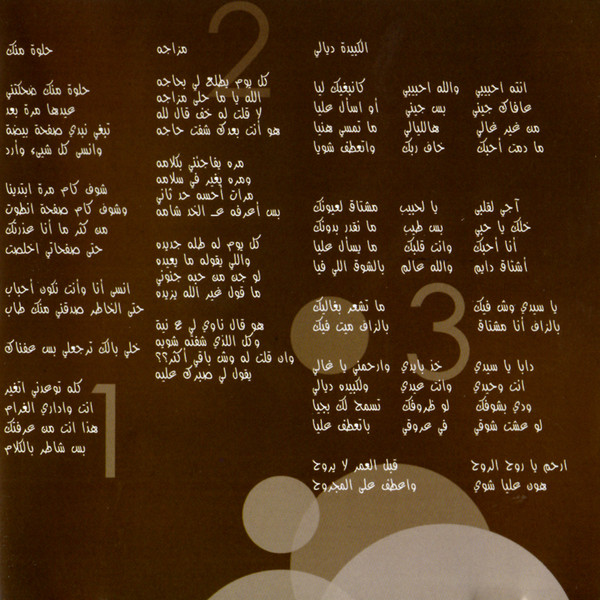 حلوة منك
حلوة منك ضحكتني
عيدها مرة بعد
تبغي نبدي صفحة بيضة
وانسى كل شيء وأرد
شوف كام مرة ابتدينا
وشوف كام صفحة انطوت
من كثر ما أنا عذرتك
حتى صفحاتي اخلصت
انسى أنا وأنت نكون أحباب
حتى الخاطر صدقني منك طاب
خلي بالك ترجعلي بس عفناك
كله توعدني اتغير
انت واداري الغرام
هذا انت من عرفتك
بس شاطر بالكلام
1
مزاجه
كل يوم يطلع لي بحاجه
الله يا ما حلى مزاجه
لا قلت له خف قال لله
هو أنت بعدك شفت حاجه
مره يفاجئني بكلامه
ومره يغير في سلامه
مرات أحسه حد ثاني
بس أعرفه عـ الخد شامه
كل يوم له طله جديده
واللي يقوله ما يعيده
لو جن من حبه جنوني
ما قول غير الله يزيده
هو قال ناوي لي ع نية
وكل اللذي شفته شويه
وان قلت له وش باقي أكثر؟؟
يقول لي صبرك عليه
2
الكبيدة ديالي
انته احبيبي والله احبيبي كانبغيك ليا
عافاك جيني بس جيني أو اسأل عليا
من غير غالي هالليالي ما تمسي هنيا
ما دمت أحبك خاف ربك واتعطف شويا
آجي لقلبي يا لحبيب مشتاق لعيونك
خلك يا حبي بس طيب ما نقدر بدونك
أنا أحبك وانت قلبك ما يسأل عليا
أشتاق دايم والله عالم بالشوق اللي فيا
يا سيدي وش فيك ما تشعر بغاليك
بالزاف أنا مشتاق بالزاف ميت فيك
دابا يا سيدي خذ بايدي وارحمني يا غالي
انت وحيدي وانت عيدي ولكبيده ديالي
ودي بشوفك لو ظروفك تسمح لك بجيا
لو عشت شوقي في عروقي باتعطف عليا
ارحم يا روح الروح قبل العمر لا يروح
هون عليا شوي واعطف على المجروح
3